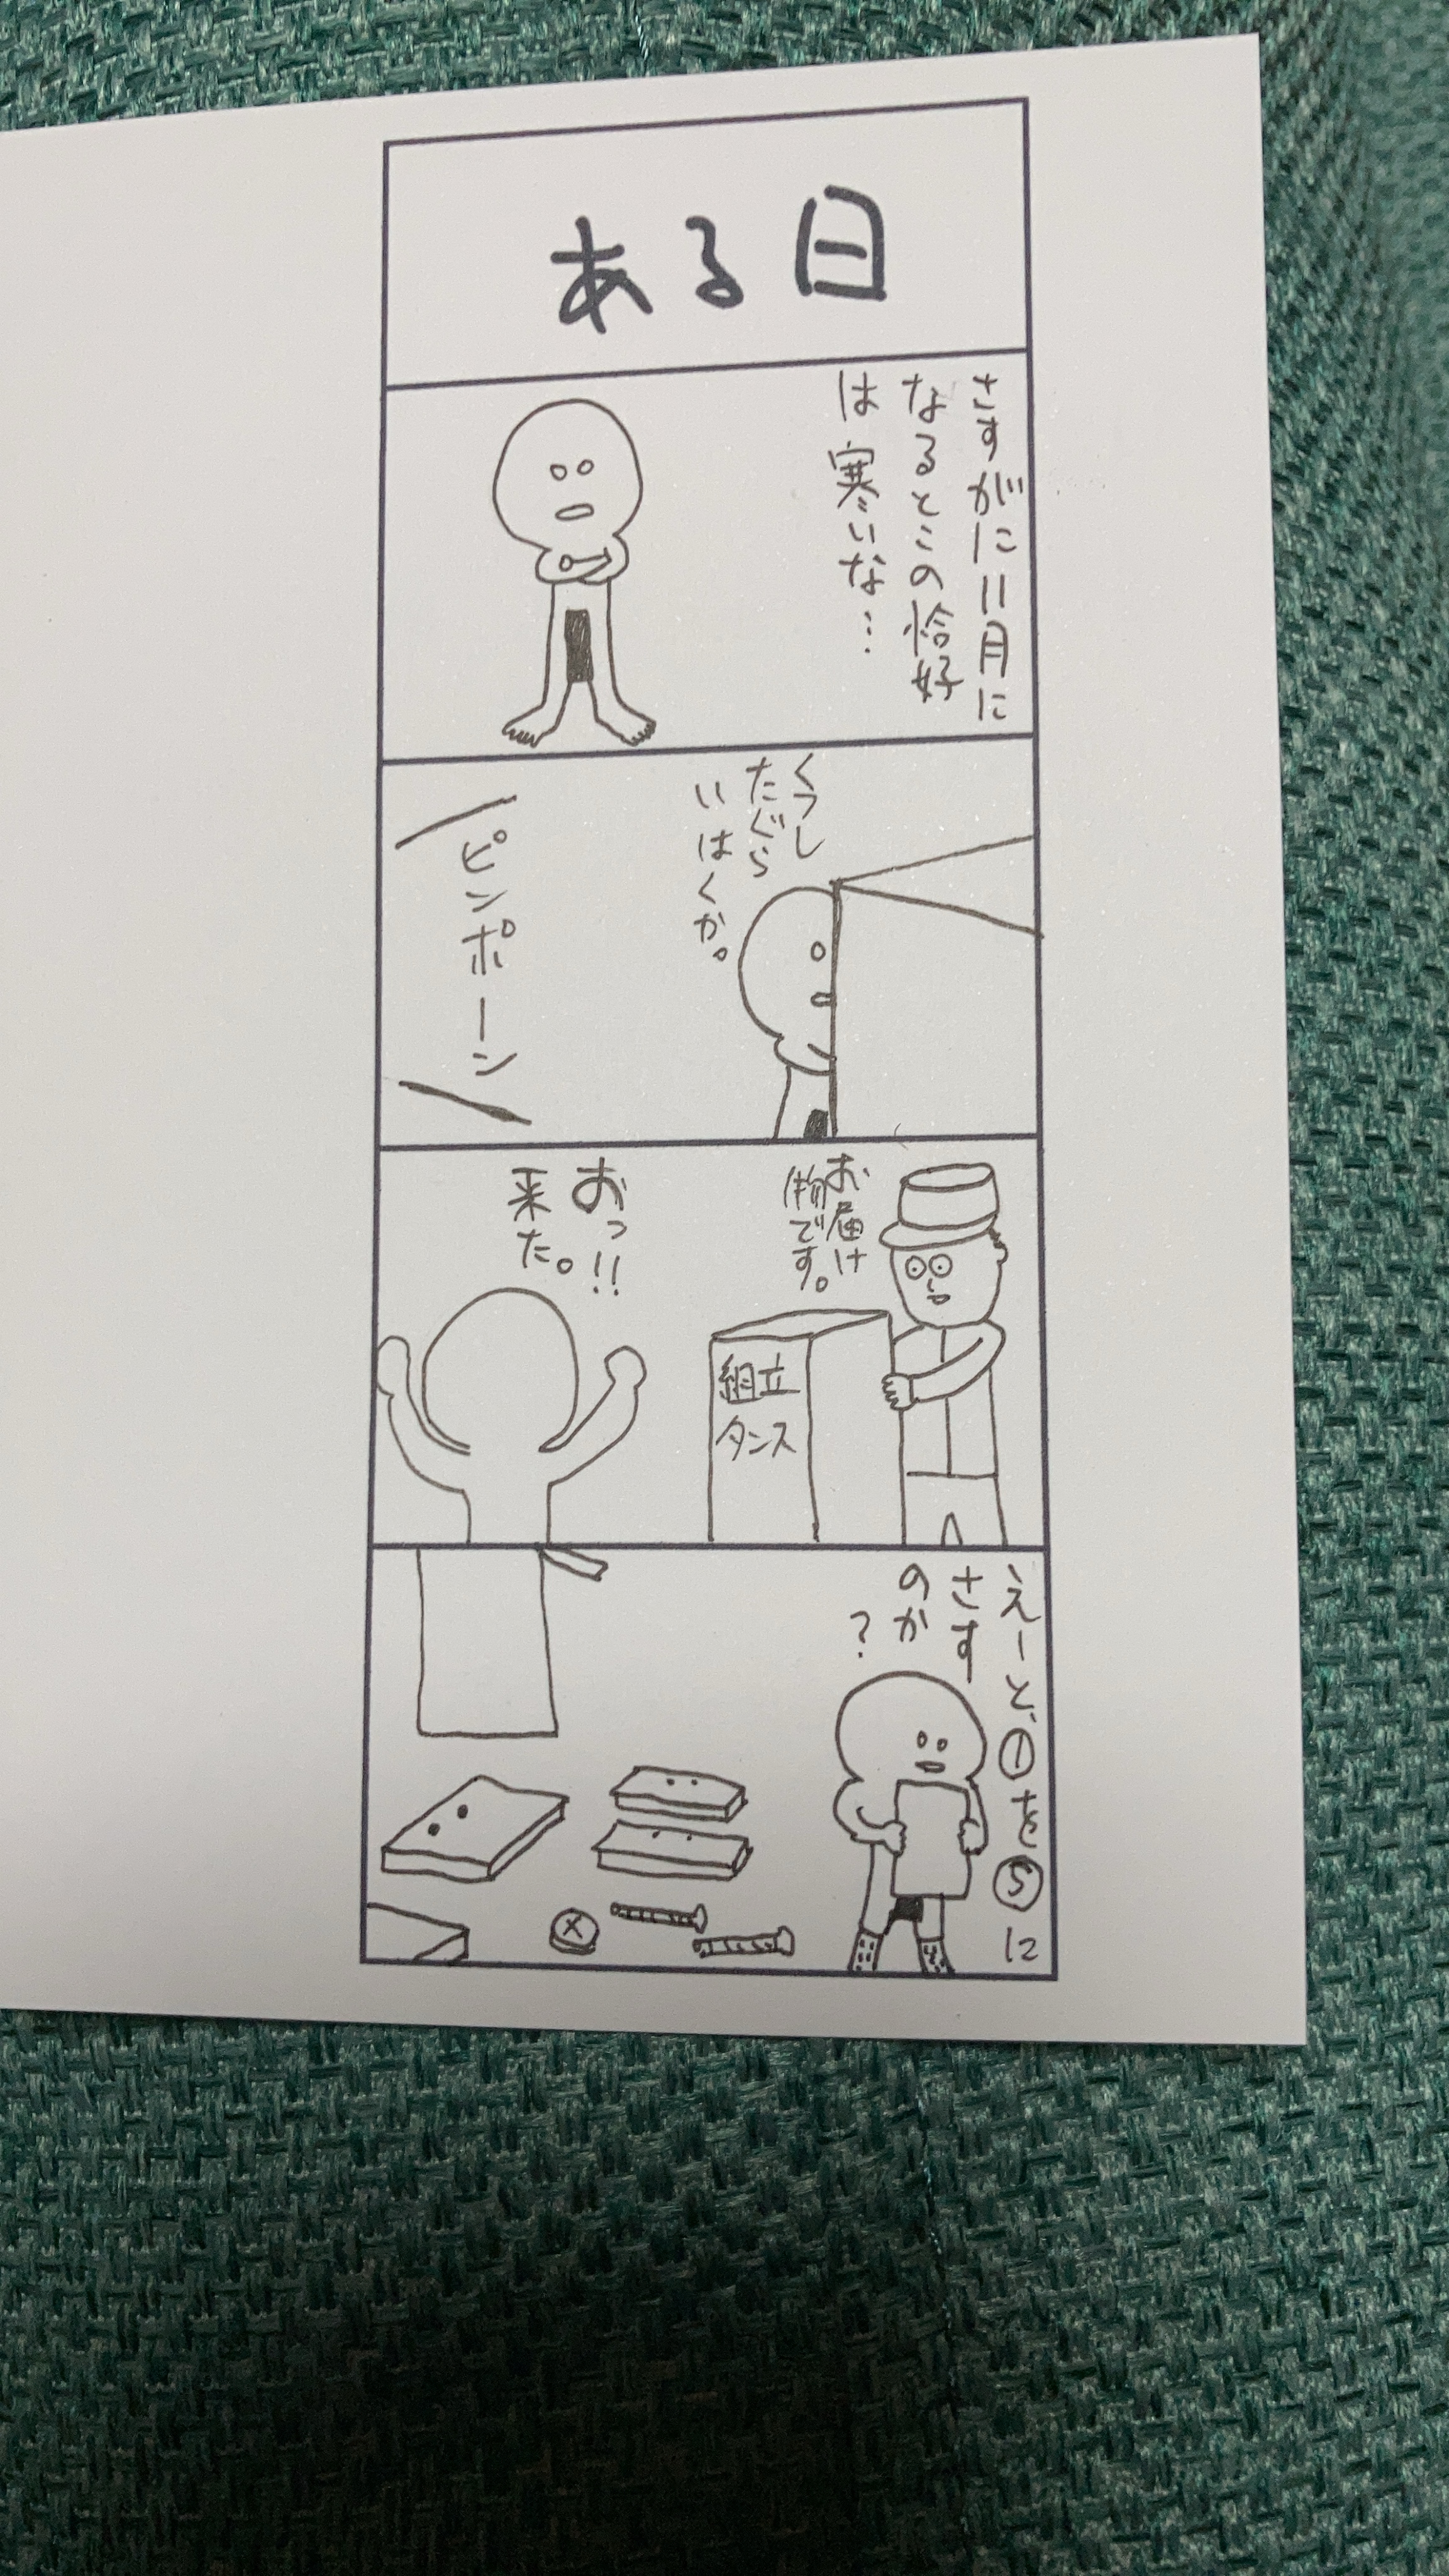 ある日
さすがに11月に
なるとこの恰好
は寒いな…
くつし
たぐら
いはくか。
ピンポーン
お届け
物です。
組立
タンス
おっ!!
来た。
えーと、①を⑤に
さす
のか
?